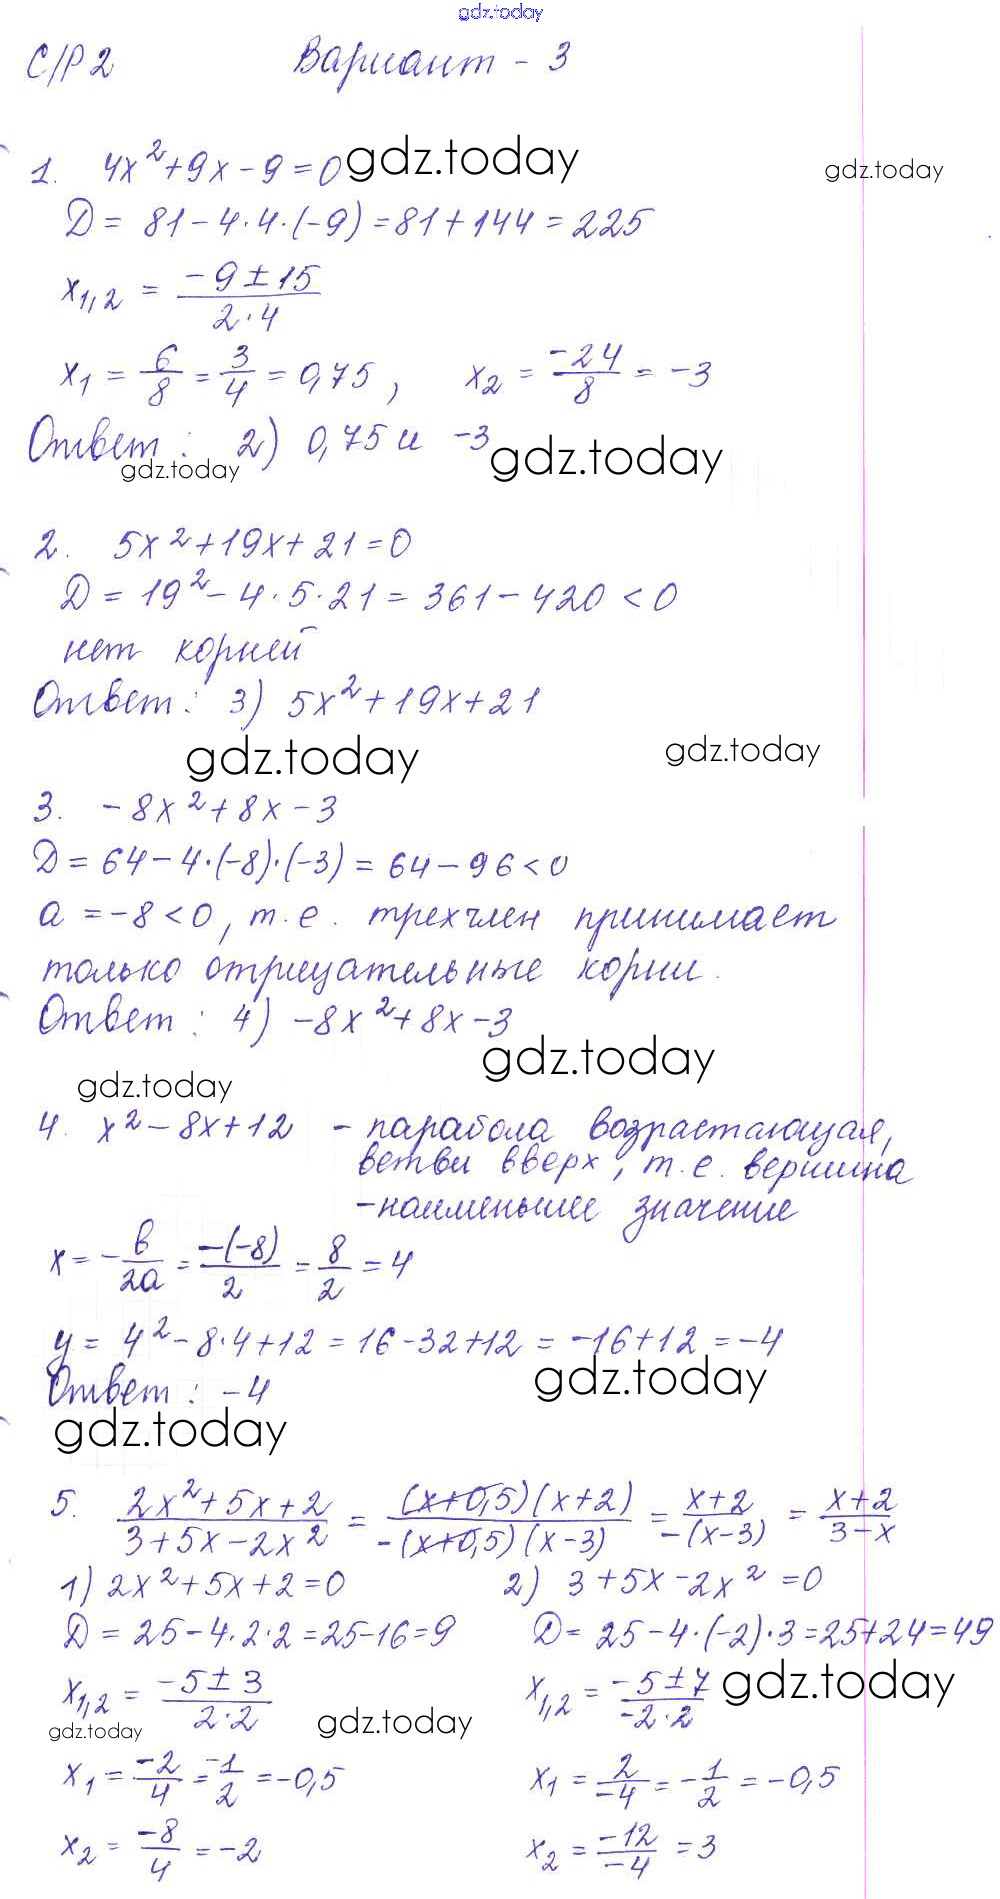 gdz.today
С/Р 2 Вариант - 3
1. 4x²+9x-9=0 gdz.today gdz.today
D = 81-4·4·(-9)=81+144=225
x₁,₂ = (-9±15)/(2·4)
x₁ = 6/8 = 3/4 = 0,75, x₂ = -24/8 = -3
Ответ: 2) 0,75 и -3
gdz.today gdz.today
2. 5x²+19x+21=0
D = 19²-4·5·21=361-420<0
нет корней
Ответ: 3) 5x²+19x+21
gdz.today gdz.today
3. -8x²+8x-3
D=64-4·(-8)·(-3)=64-96<0
a=-8<0, т.е. трехчлен принимает
только отрицательные корни.
Ответ: 4) -8x²+8x-3
gdz.today
gdz.today
4. x²-8x+12 - парабола возрастающая,
ветви вверх, т.е. вершина
-наименьшее значение
x=-в/2a = -(-8)/2 = 8/2 = 4
y = 4²-8·4+12=16-32+12=-16+12=-4
Ответ: -4 gdz.today
gdz.today
5. (2x²+5x+2)/(3+5x-2x²) = (x+0,5)(x+2)/-(x+0,5)(x-3) = (x+2)/-(x-3) = (x+2)/(3-x)
1) 2x²+5x+2=0 2) 3+5x-2x²=0
D=25-4·2·2=25-16=9 D=25-4·(-2)·3=25+24=49
x₁,₂ = (-5±3)/(2·2) x₁,₂ = (-5±7)/(-2·2) gdz.today
gdz.today gdz.today
x₁ = -2/4 = -1/2 = -0,5 x₁ = 2/-4 = -1/2 = -0,5
x₂ = -8/4 = -2 x₂ = -12/-4 = 3